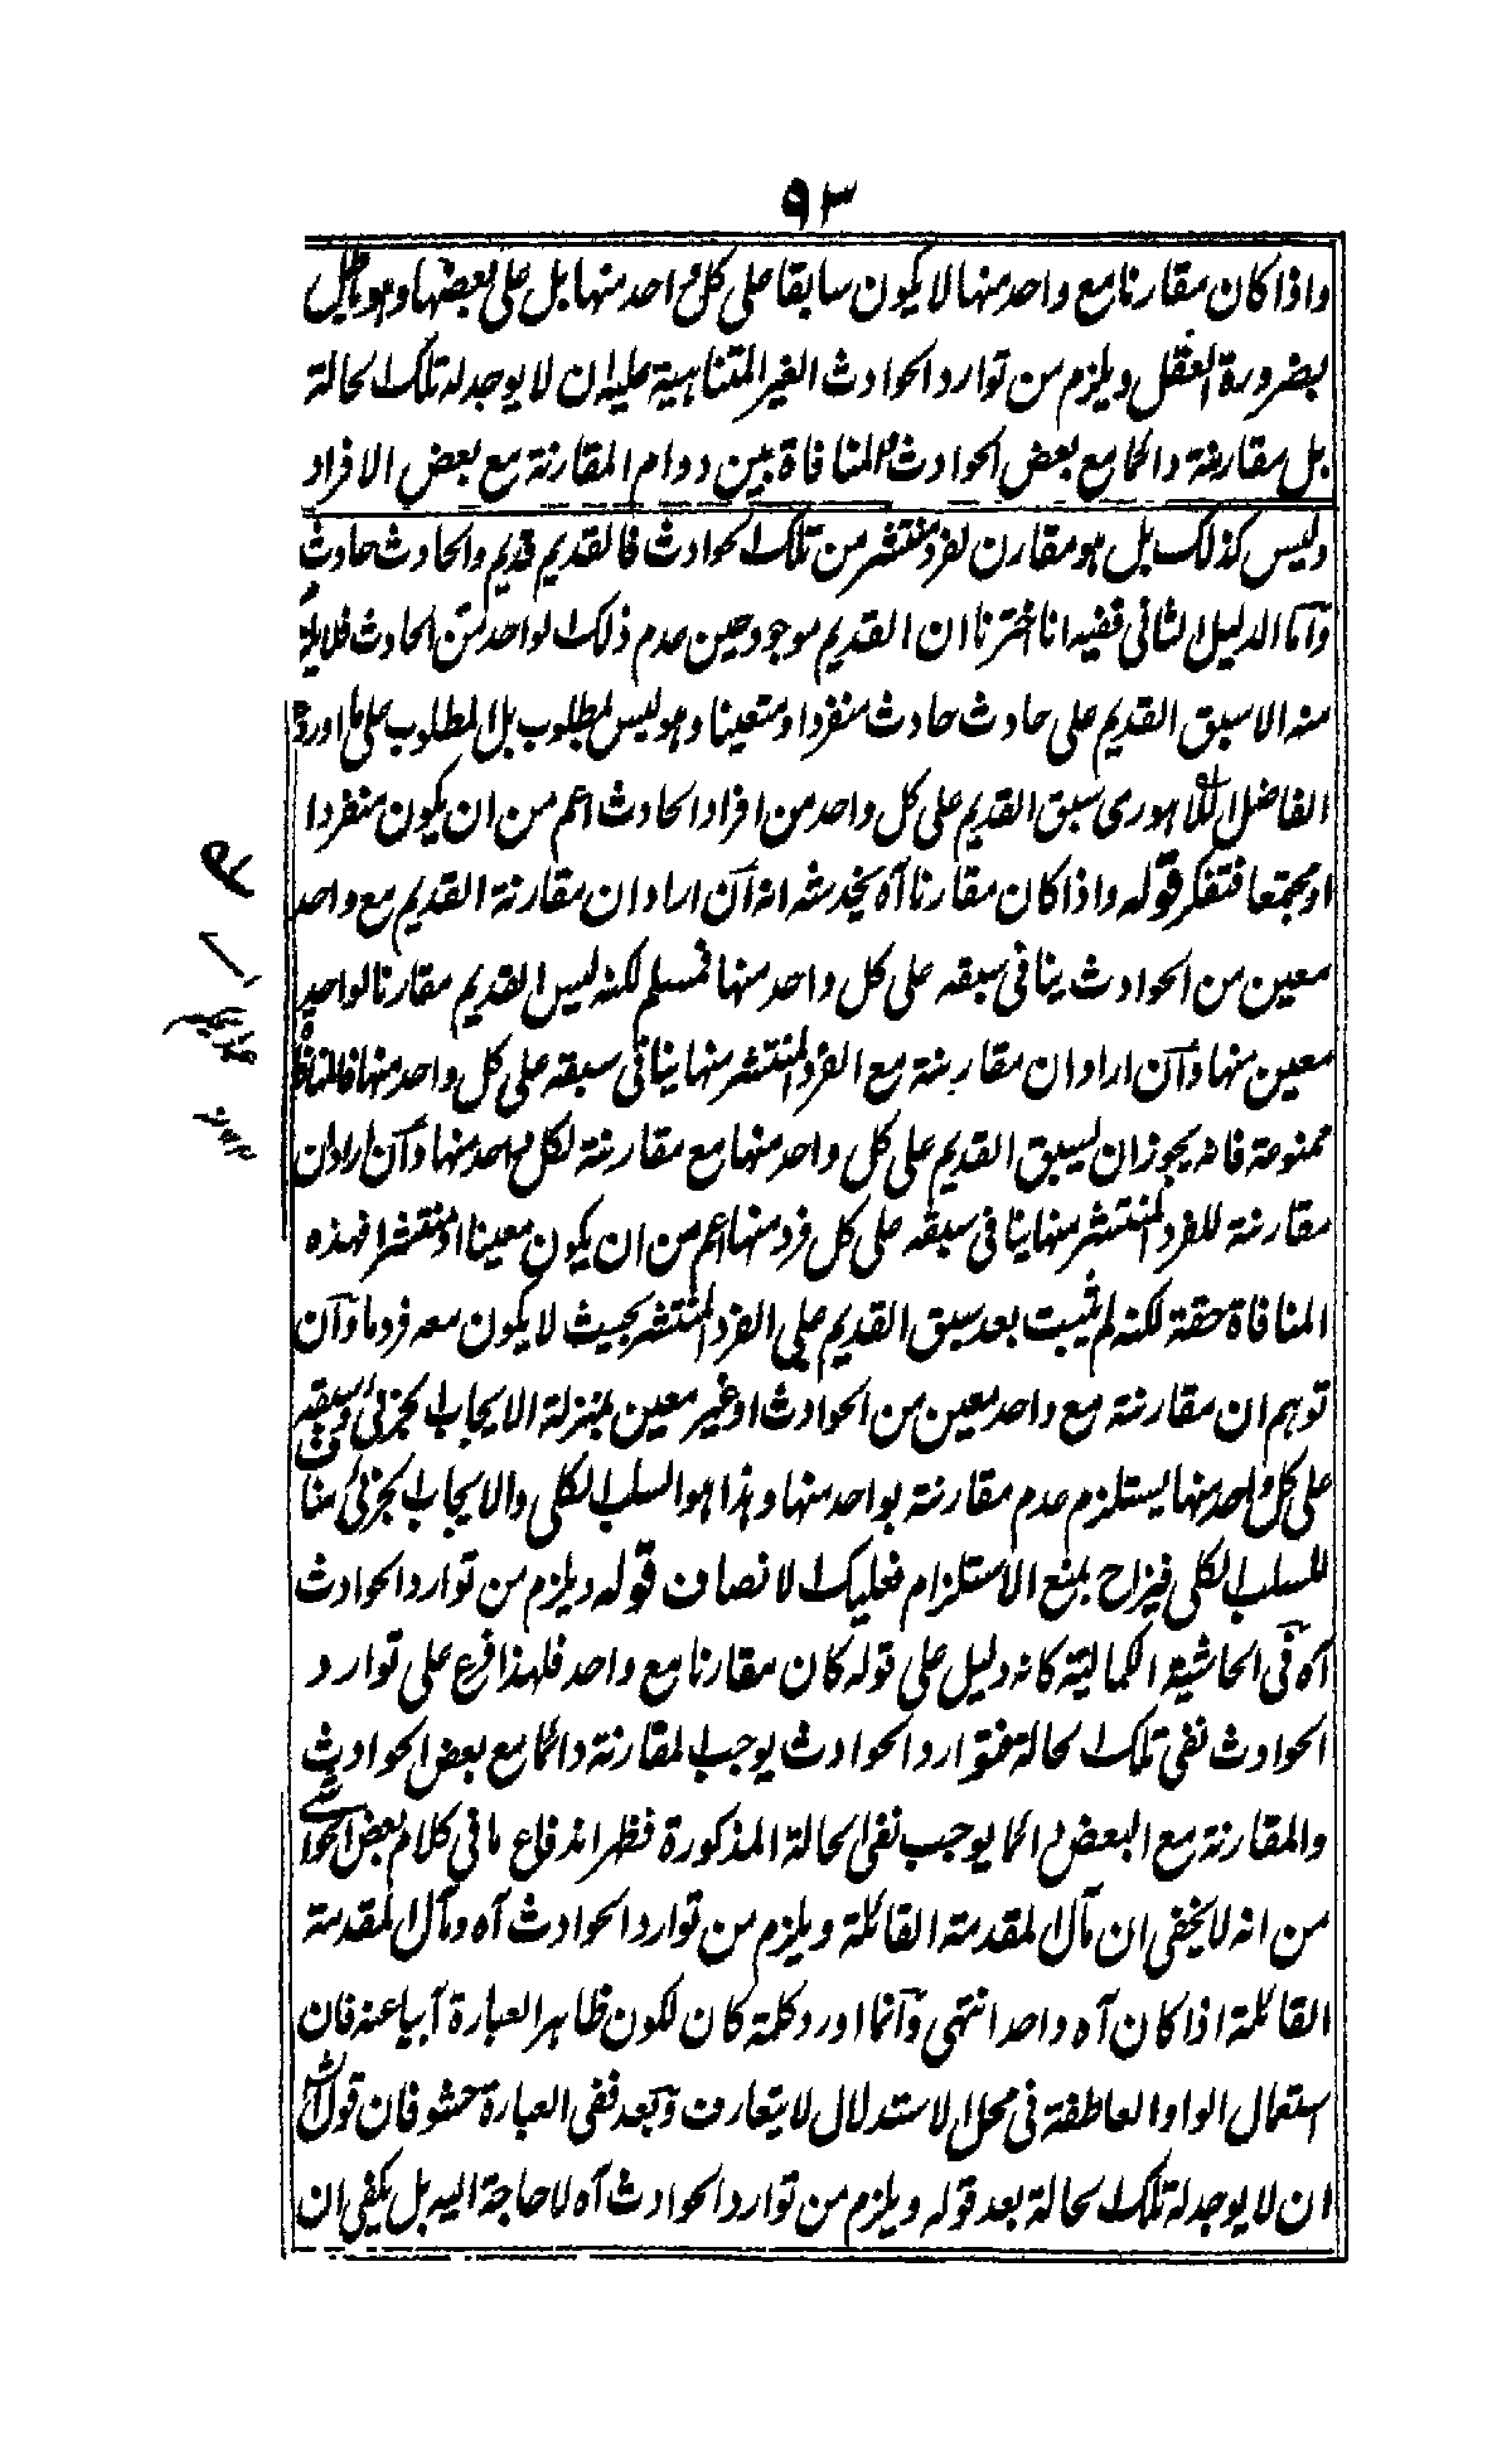 ٩٣
واذا كان مقارنا مع واحد منها لا يكون سابقا على كل واحد منها بل على بعضها وهو باطل
بضرورة العقل ويلزم من توارد الحوادث الغير المتناهية عليه ان لا يوجد له تلك الحالة
بل مقارنة دائما مع بعض الحوادث والمنافاة بين دوام المقارنة مع بعض الافراد
وليس كذلك بل هو مقارن لفرد منتشر من تلك الحوادث فالقديم قديم والحادث حادث
وأما الدليل الثاني ففيه انا اخترنا ان القديم موجود حين عدم ذلك الواحد من الحادث فلا يلزم
منه الا سبق القديم على حادث حادث منفردا ومتعينا وهو ليس بمطلوب بل المطلوب على ما اورده
الفاضل اللاهوري سبق القديم على كل واحد من افراد الحادث اعم من ان يكون منفردا
او مجتمعا فتفكر قوله واذا كان مقارنا آه يخدشه انه ان اراد ان مقارنة القديم مع واحد
معين من الحوادث ينافي سبقه على كل واحد منها فمسلم لكنه ليس القديم مقارنا لواحد
معين منها وان اراد ان مقارنة مع الفرد المنتشر منها ينافي سبقه على كل واحد منها فالمنافاة
ممنوعة فانه يجوز ان يسبق القديم على كل واحد منها مع مقارنة لكل واحد منها وان اراد ان
مقارنة للفرد المنتشر منها ينافي سبقه على كل فرد منها اعم من ان يكون معينا او منتشرا فهذه
المنافاة حقة لكنه لم يثبت بعد سبق القديم على الفرد المنتشر بحيث لا يكون معه فرد ما وان
توهم ان مقارنة مع واحد معين من الحوادث او غير معين بمنزلة الايجاب الجزئي وسبقه
على كل واحد منها يستلزم عدم مقارنة بواحد منها وهذا هو السلب الكلي والايجاب الجزئي مناف
للسلب الكلي فيزاح بمنع الاستلزام فعليك الانصاف قوله ويلزم من توارد الحوادث
آه في الحاشية الكمالية كانه دليل على قوله كان مقارنا مع واحد فلهذا فرع على توارد
الحوادث نفي تلك الحالة فتوارد الحوادث يوجب المقارنة دائما مع بعض الحوادث
والمقارنة مع البعض دائما يوجب نفي الحالة المذكورة فظهر اندفاع ما في كلام بعض الحواشي
من انه لا يخفى ان مآل المقدمة القائلة ويلزم من توارد الحوادث آه ومآل المقدمة
القائلة اذا كان آه واحد انتهى وانما اورد كلمة كان لكون ظاهر العبارة آبيا عنه فان
استعمال الواو العاطفة في محل الاستدلال لا يتعارف وبعد ففي العبارة حشو فان قول الش
ان لا يوجد له تلك الحالة بعد قوله ويلزم من توارد الحوادث آه لا حاجة اليه بل يكفي ان